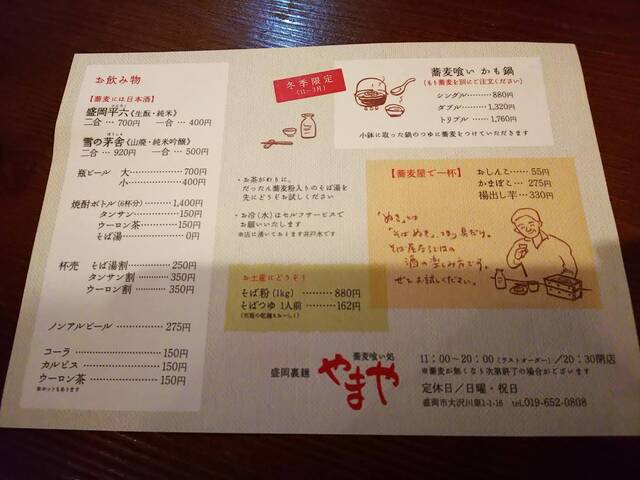 お飲み物
【蕎麦には日本酒】
盛岡平六《生酛・純米》
二合 … 700円 一合 … 400円
雪の茅舎《山廃・純米吟醸》
二合 … 920円 一合 … 500円
瓶ビール 大 ……… 700円
小 ……… 400円
焼酎ボトル(6杯分) … 1,400円
タンサン ……… 150円
ウーロン茶 ……… 150円
そば湯 ……… 0円
杯売 そば湯割 ……… 250円
タンサン割 ……… 350円
ウーロン割 ……… 350円
ノンアルビール ……… 275円
コーラ ……… 150円
カルピス ……… 150円
ウーロン茶 ……… 150円
冬季限定
(11~3月)
蕎麦喰い かも鍋
(もり蕎麦を別にご注文ください)
シングル ……… 880円
ダブル ……… 1,320円
トリプル ……… 1,760円
小鉢に取った鍋のつゆに蕎麦をつけていただきます
・お茶がわりに、
だったん蕎麦粉入りのそば湯を
先にどうぞお試しください
・お冷(水)はセルフサービスで
お願いいたします
※店に湧いております井戸水です
【蕎麦屋で一杯】
おしんこ …… 55円
かまぼこ … 275円
揚出し芋 … 330円
「ぬき」は
「そばぬき」、つまり具だけ。
そば屋ならではの
酒の楽しみ方です。
ぜひお試しください。
お土産にどうぞ!
そば粉(1kg) ……… 880円
そばつゆ 1人前 ……… 162円
蕎麦喰い処
盛岡裏麺
やまや
11:00~20:00(ラストオーダー)/20:30閉店
※蕎麦が無くなり次第終了の場合がございます
定休日/日曜・祝日
盛岡市大沢川原1-1-16 tel.019-652-0808